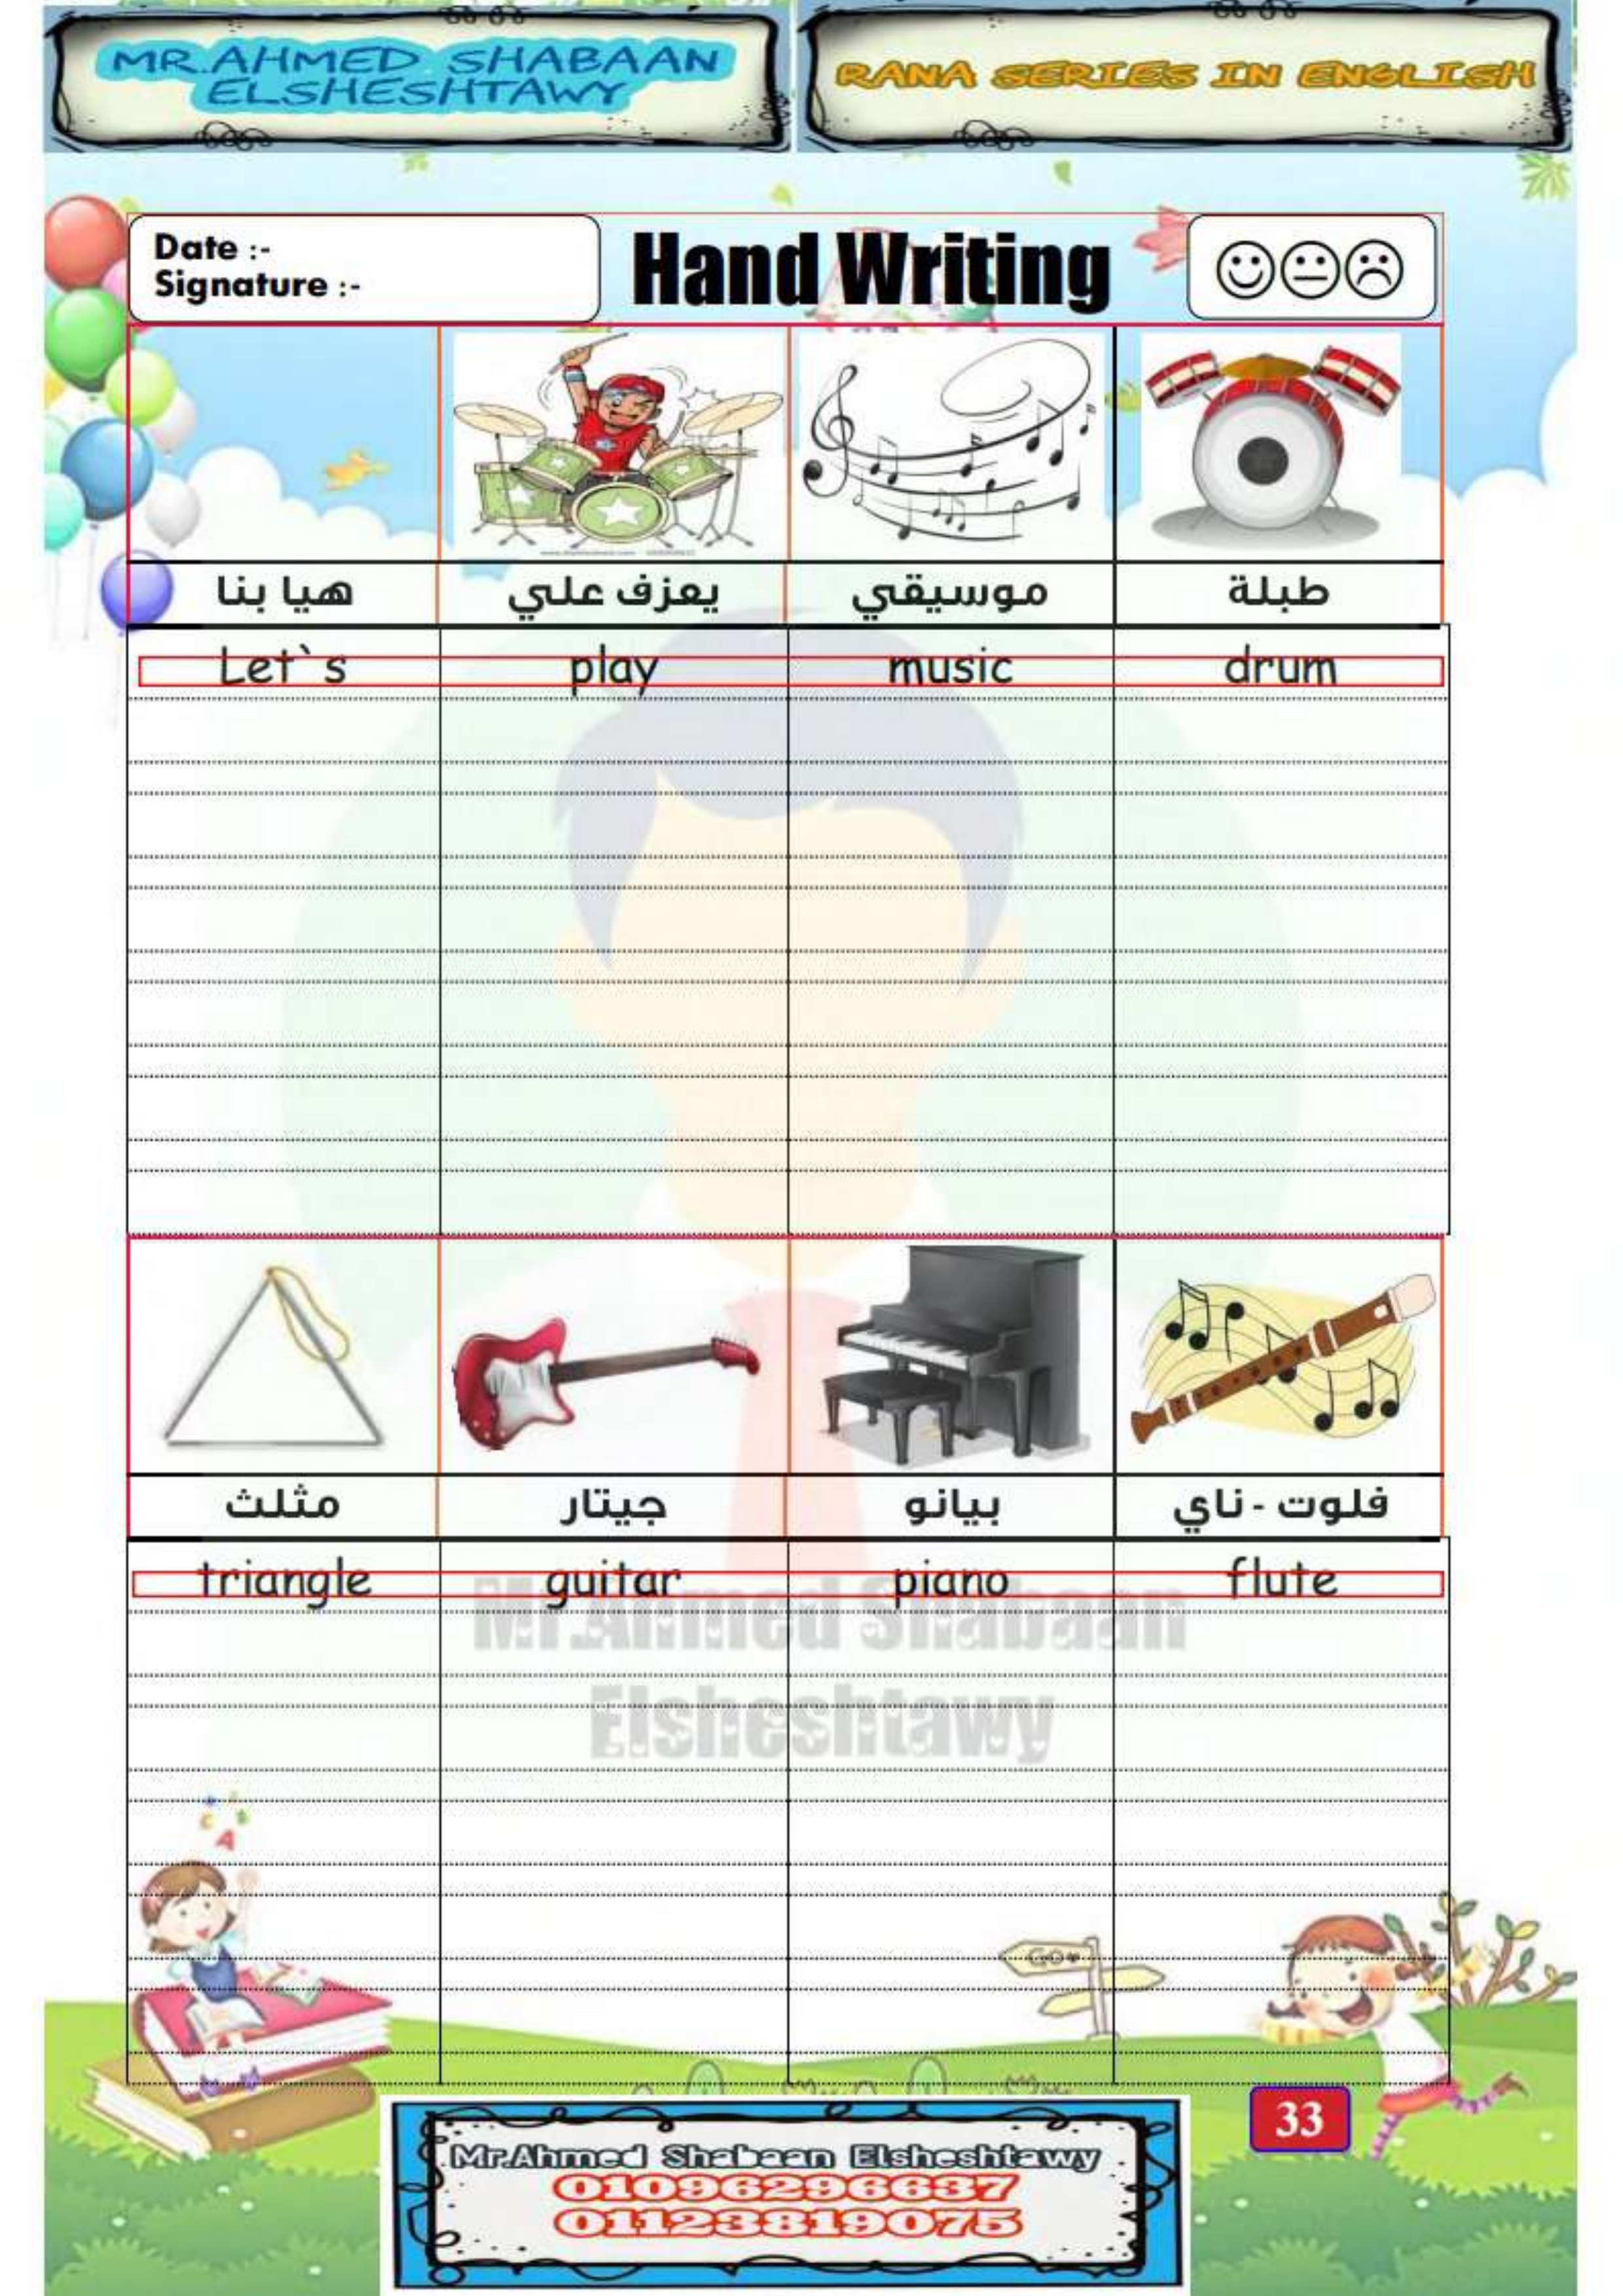 MR.AHMED SHABAAN
ELSHESHTAWY
RANA SERIES IN ENGLISH
Date :-
Signature :-
Hand Writing
هيا بنا
يعزف علي
موسيقي
طبلة
Let`s
play
music
drum
مثلث
جيتار
بيانو
فلوت - ناي
triangle
guitar
piano
flute
Mr.Ahmed Shabaan
Elsheshtawy
A
Go
33
Mr.Ahmed Shabaan Elsheshtawy
01096296637
01123819075